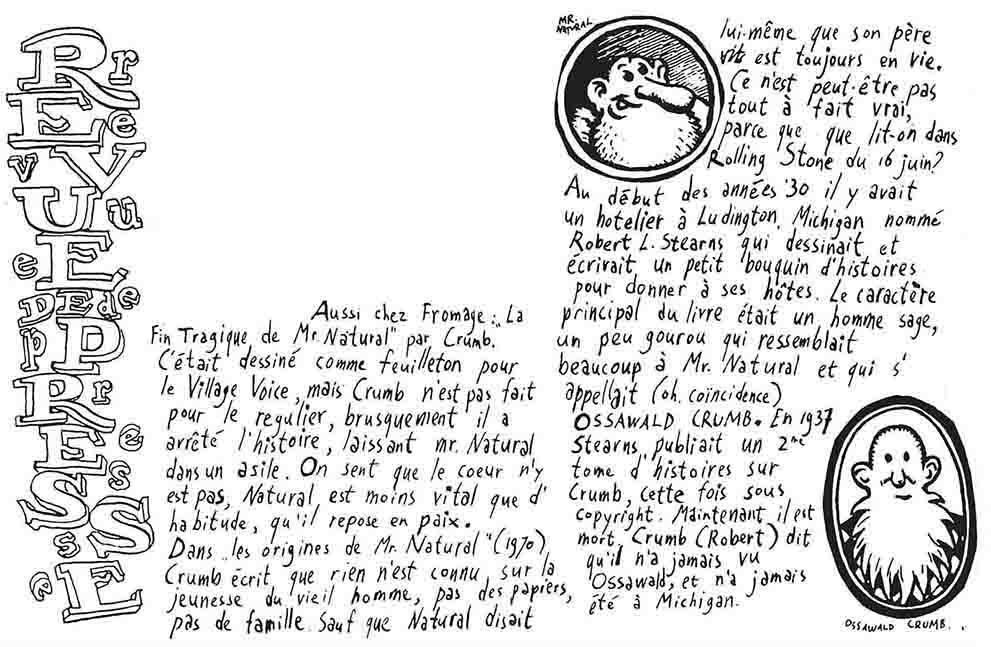 Rr
REe
vV
Uu
eE
DEde
pP
Rr
Ee
Ss
sS
eE
Aussi chez Fromage: „La
Fin Tragique de Mr. Natural" par Crumb.
C'était dessiné comme feuilleton pour
le Village Voice, mais Crumb n'est pas fait
pour le regulier, brusquement il a
arrêté l'histoire, laissant mr. Natural
dans un asile. On sent que le coeur n'y
est pas, Natural est moins vital que d'
habitude, qu'il repose en paix.
Dans „les origines de Mr. Natural" (1970)
Crumb écrit que rien n'est connu sur la
jeunesse du vieil homme, pas des papiers,
pas de famille. Sauf que Natural disait
MR.
NATURAL
lui-même que son père
est toujours en vie.
Ce n'est peut-être pas
tout à fait vrai,
parce que que lit-on dans
Rolling Stone du 16 juin?
Au début des années '30 il y avait
un hotelier à Ludington, Michigan nommé
Robert L. Stearns qui dessinait et
écrivait un petit bouquin d'histoires
pour donner à ses hôtes. Le caractère
principal du livre était un homme sage,
un peu gourou qui ressemblait
beaucoup à Mr. Natural et qui s'
appellait (oh, coïncidence)
OSSAWALD CRUMB. En 1937
Stearns, publiait un 2me
tome d'histoires sur
Crumb, cette fois sous
copyright. Maintenant il est
mort. Crumb (Robert) dit
qu'il n'a jamais vu
Ossawald, et n'a jamais
été à Michigan.
OSSAWALD CRUMB.